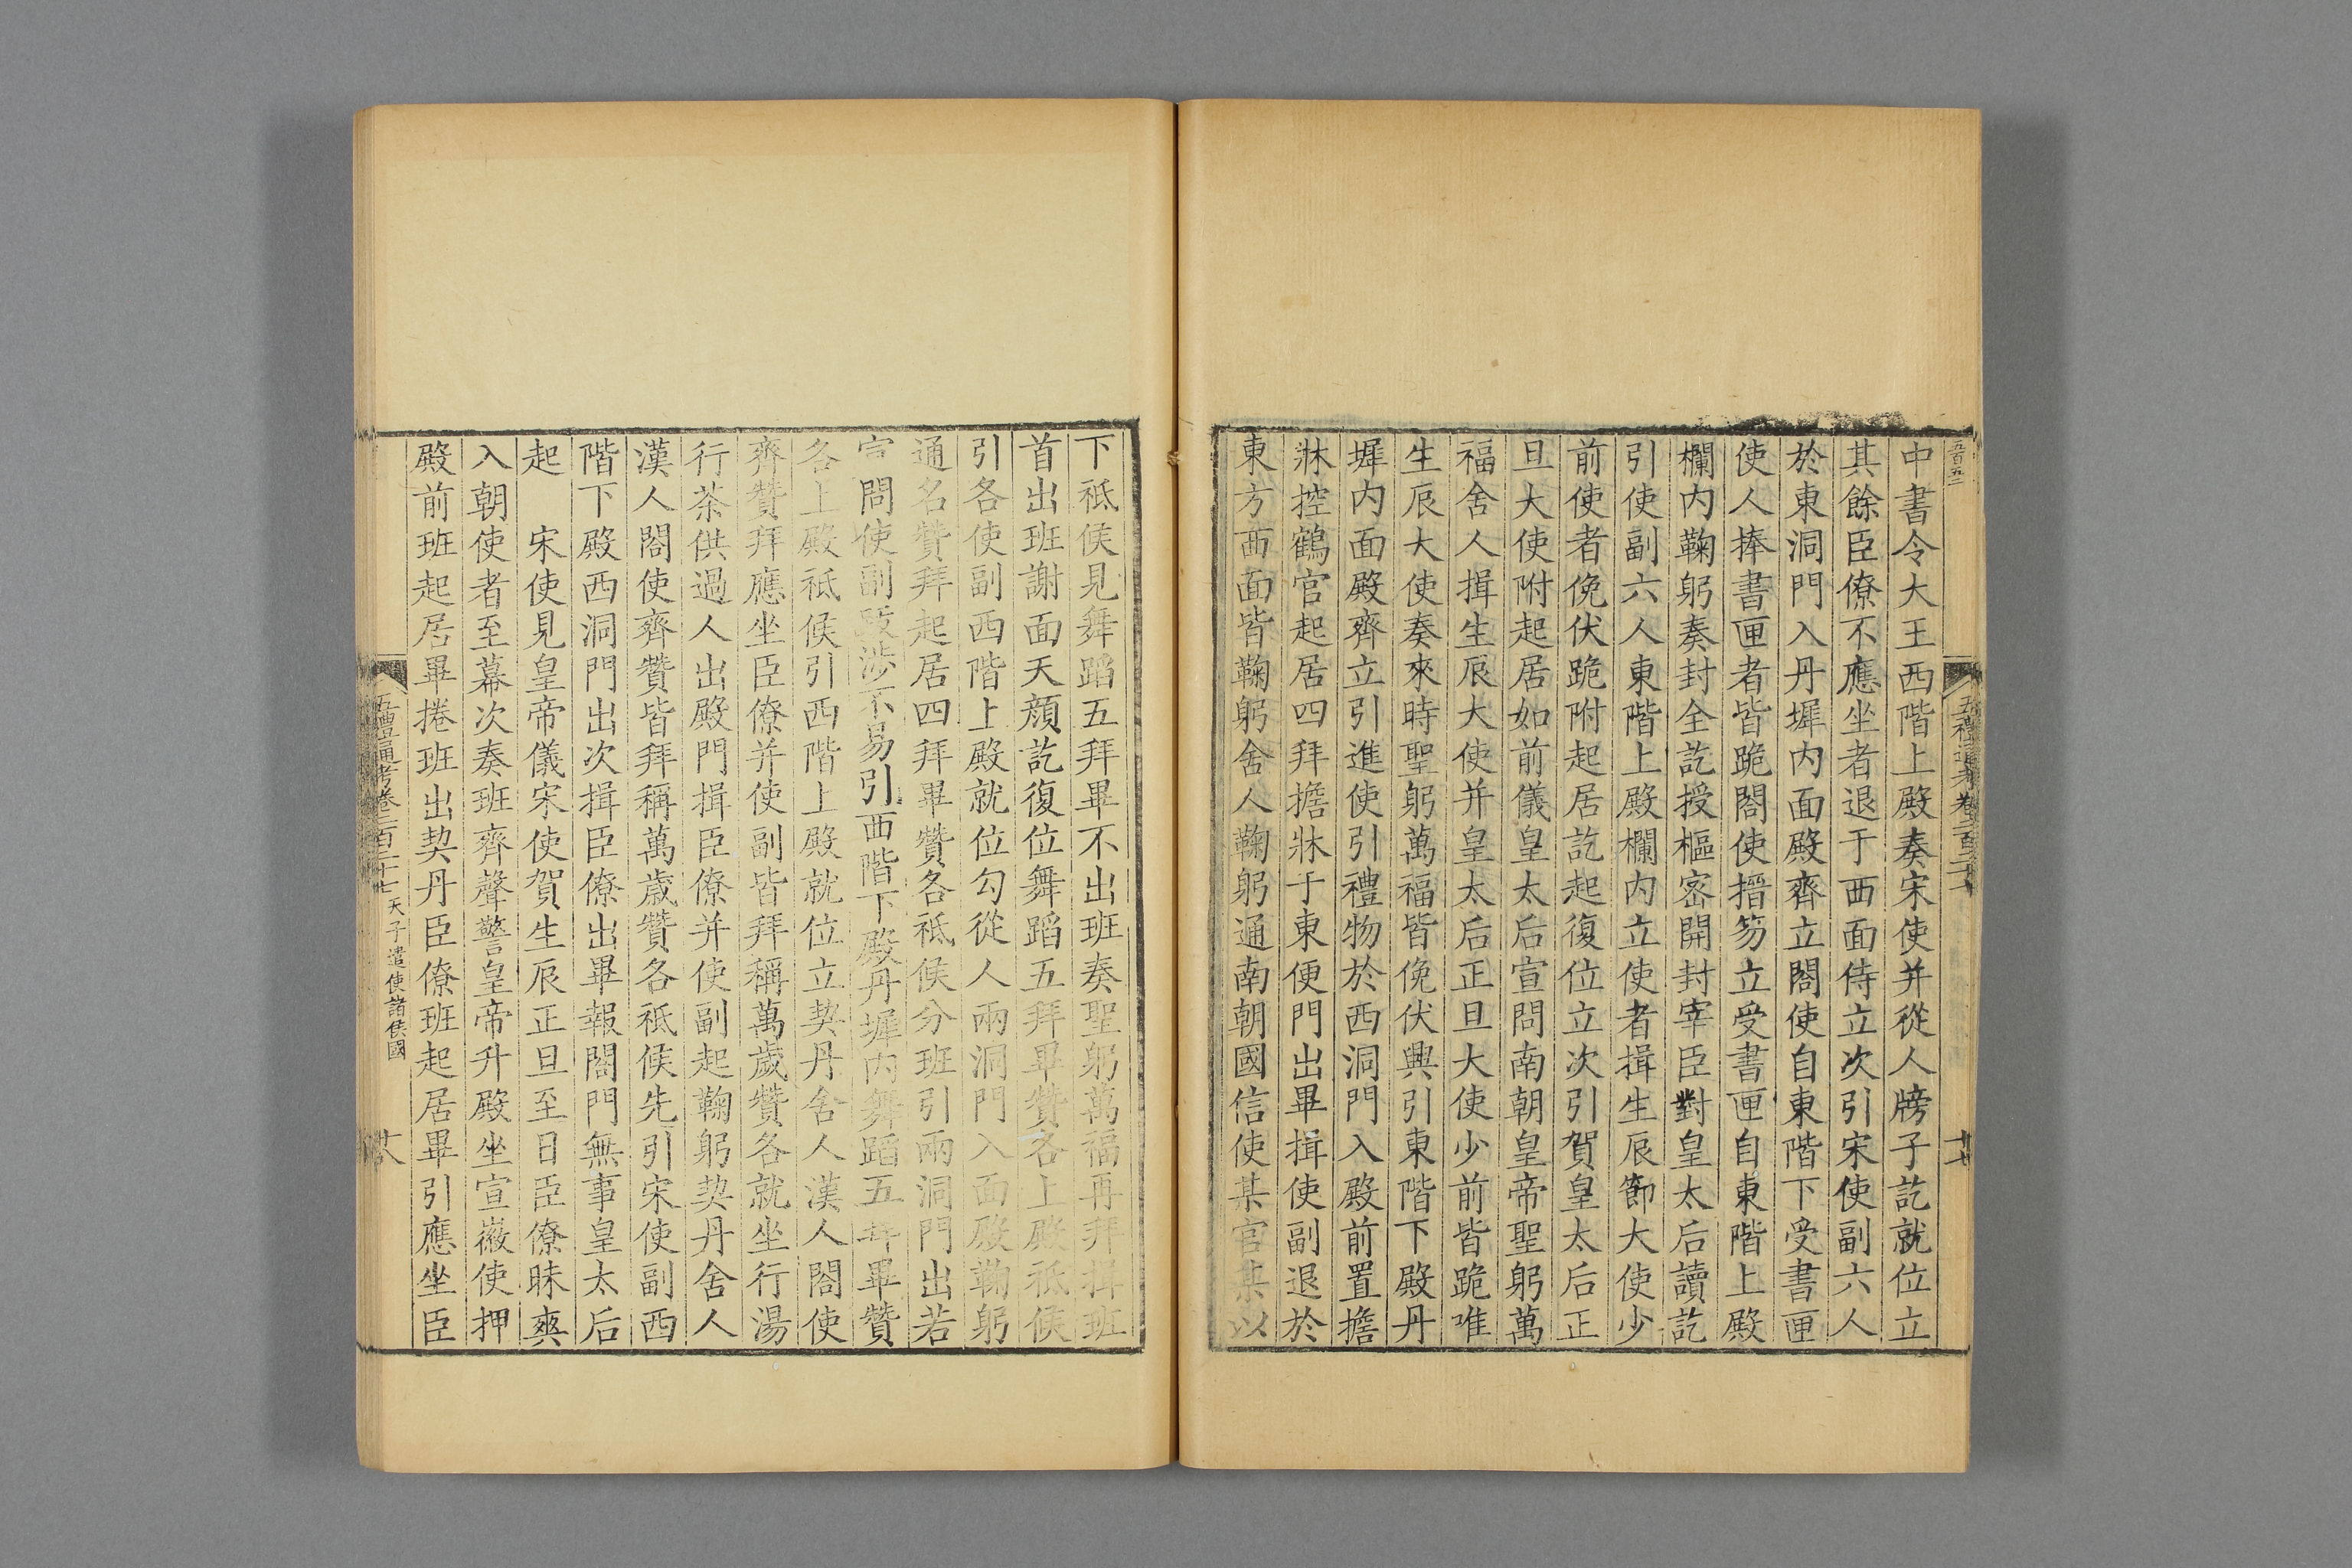 中書令大王西階上殿奏宋使并從人牓子訖就位立
其餘臣僚不應坐者退于西面侍立次引宋使副六人
於東洞門入丹墀内面殿齊立閤使自東階下受書匣
使人捧書匣者皆跪閤使搢笏立受書匣自東階上殿
欄内鞠躬奏封全訖授樞密開封宰臣對皇太后讀訖
引使副六人東階上殿欄内立使者揖生辰節大使少
前使者俛伏跪附起居訖起復位立次引賀皇太后正
旦大使附起居如前儀皇太后宣問南朝皇帝聖躬萬
福舍人揖生辰大使并皇太后正旦大使少前皆跪唯
生辰大使奏來時聖躬萬福皆俛伏興引東階下殿丹
墀内面殿齊立引進使引禮物於西洞門入殿前置擔
牀控鶴官起居四拜擔牀于東便門出畢揖使副退於
東方西面皆鞠躬舍人鞠躬通南朝國信使某官某以
下祗候見舞蹈五拜畢不出班奏聖躬萬福再拜揖班
首出班謝面天顔訖復位舞蹈五拜畢贊各上殿祗候
引各使副西階上殿就位勾從人兩洞門入面殿鞠躬
通名贊拜起居四拜畢贊各祗候分班引兩洞門出若
宣問使副跋涉不易引西階下殿丹墀内舞蹈五拜畢贊
各上殿祗候引西階上殿就位立契丹舍人漢人閤使
齊贊拜應坐臣僚并使副皆拜稱萬歲贊各就坐行湯
行茶供過人出殿門揖臣僚并使副起鞠躬契丹舍人
漢人閤使齊贊皆拜稱萬歲贊各祗候先引宋使副西
階下殿西洞門出次揖臣僚出畢報閤門無事皇太后
起　宋使見皇帝儀宋使賀生辰正旦至日臣僚昧爽
入朝使者至幕次奏班齊聲警皇帝升殿坐宣徽使押
殿前班起居畢捲班出契丹臣僚班起居畢引應坐臣
五禮通考卷二百二十七 天子遣使諸侯國 十八